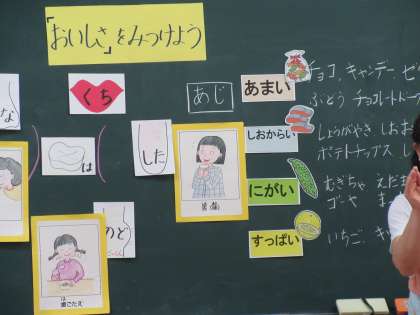 「おいしさ」をみつけよう
な
くち
あじ
あまい
チョコ、キャンデー、ピ
ぶどう チョコレートケー
は
した
しおからい
しょうがやき しお
ポテトチップス し
にがい
むぎちゃ えだま
ゴーヤ ま
のど
すっぱい
いちご、キ
歯ごたえ